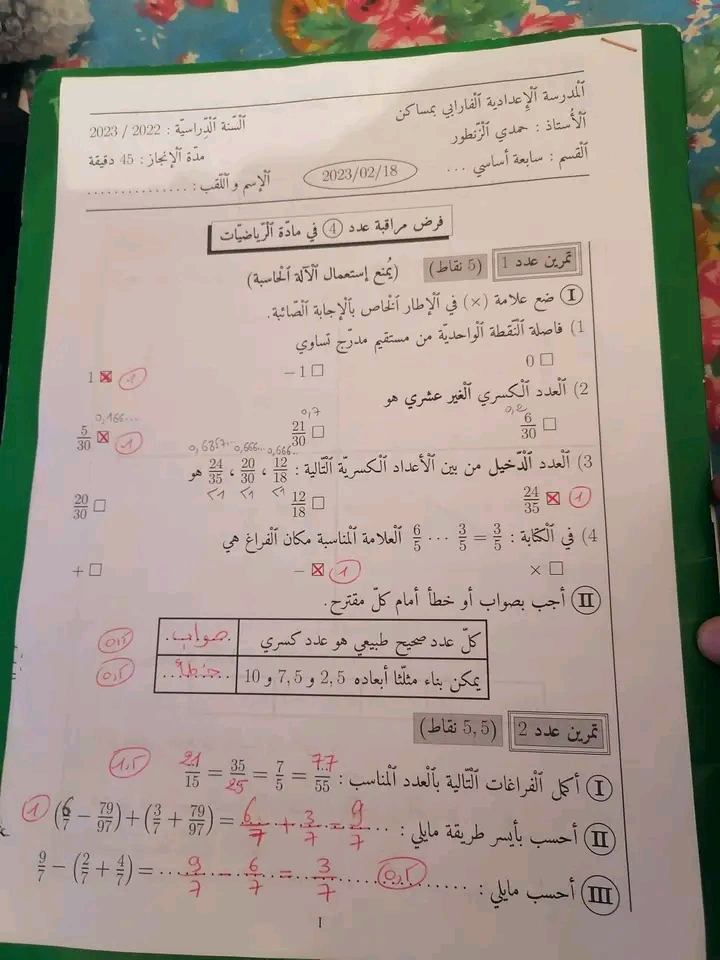 اَلْمدرسة اَلْإعدادية اَلْفارابي بمساكن
اَلْأستاذ : حمدي اَلْزّنطور    اَلْسّنة اَلْدّراسيّة : 2022 / 2023
اَلْقسم : سابعة أساسي ...    2023/02/18    مدّة اَلْإنجاز : 45 دقيقة
اَلْإسم و اَلْلّقب : ................
فرض مراقبة عدد 4 في مادّة اَلْرّياضيّات
تمرين عدد 1 (5 نقاط) (يُمنع إستعمال اَلْآلة اَلْحاسبة)
I ضع علامة (×) في اَلْإطار اَلْخاص بِالْإجابة اَلْصّائبة.
1) فاصلة اَلْنّقطة اَلْواحديّة من مستقيم مدرّج تساوي
☐ 0    ☐ −1    ☒ 1    1
2) اَلْعدد اَلْكسري اَلْغير عشري هو
0,2    0,7    0,166...
☐ 6/30    ☐ 21/30    ☒ 5/30    1
0,666..    0,666..    0,6857..
3) اَلْعدد اَلْدّخيل من بين اَلْأعداد اَلْكسريّة اَلْتّالية : 12/18 ، 20/30 ، 24/35 هو
<1    <1    <1
1 ☒ 24/35    ☐ 12/18    ☐ 20/30
4) في اَلْكتابة : 6/5 ... 3/5 = 3/5 اَلْعلامة اَلْمناسبة مكان اَلْفراغ هي
☐ ×    1 ☒ −    ☐ +
II أجب بصواب أو خطأ أمام كلّ مقترح.
كلّ عدد صحيح طبيعي هو عدد كسري    صواب    0,5
يمكن بناء مثلّثا أبعاده 2,5 و 7,5 و 10    خطأ    0,5
تمرين عدد 2 (5,5 نقاط)
I أكمل اَلْفراغات اَلْتّالية بِالْعدد اَلْمناسب : 21/15 = 35/25 = 7/5 = 77/55    1,5
II أحسب بأيسر طريقة مايلي : (6/7 − 79/97) + (3/7 + 79/97) = 6/7 + 3/7 = 9/7    1
III أحسب مايلي : 9/7 − (2/7 + 4/7) = 9/7 − 6/7 = 3/7    0,5
1